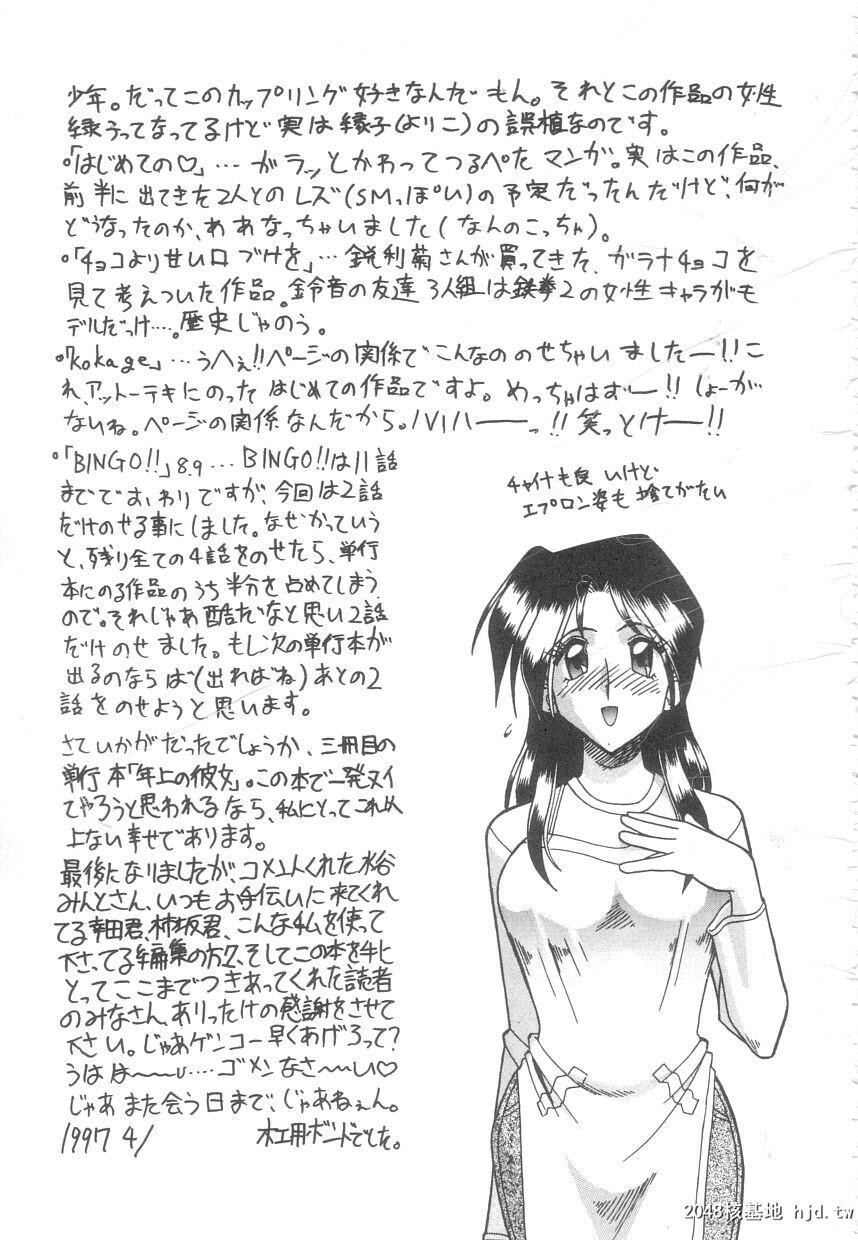 少年。だってこのカップリング好きなんだもん。それとこの作品の女性
縁うってなってるけど実は縁子(よりこ)の誤植なのです。
•「はじめての♡」…ガラッとかわってつるぺたマンガ。実はこの作品、
前半に出てきた2人とのレズ(SMっぽい)の予定だったんだけど、何が
どうなったのか、ああなっちゃいました(なんのこっちゃ)。
•「チョコより甘い口づけを」…鋭利菊さんが買ってきた、ガラナチョコを
見て考えついた作品。鈴音の友達3人組は鉄拳2の女性キャラがモ
デルだっけ…。歴史じゃのう。
•「kokage」…うへぇ!!ページの関係でこんなののせちゃいましたー!!こ
れ、アットーテキにのったはじめての作品ですよ。めっちゃはずー!!しょーが
ないね。ページの関係なんだから。ハハハーーっ!!笑っとけー!!
•「BINGO!!」8.9…BINGO!!は11話
まででおわりですが、今回は2話
だけのせる事にしました。なぜかっていう
と、残り全ての4話をのせたら、単行
本にのる作品のうち半分を占めてしまう
ので。それじゃあ酷だなと思い2話
だけのせました。もし次の単行本が
出るのならば(出ればね)あとの2
話をのせようと思います。
さていかがだったでしょうか、三冊目の
単行本「年上の彼女」。この本で一発ヌイ
てやろうと思われるなら、私にとってこれ以
上ない幸せであります。
最後になりましたが、コメントくれた水谷
みんとさん、いつもお手伝いに来てくれ
てる幸田君、柿坂君、こんな私を使って
下さってる編集の方々、そしてこの本を手に
とってここまでつきあってくれた読者
のみなさん、ありったけの感謝をさせて
下さい。じゃあゲンコー早くあげろって?
うはは〜〜〜…ゴメンなさ〜〜い♡
じゃあまた会う日まで、じゃあねぇん。
1997 4/ 木工用ボンドでした。
チャイナも良いけど
エプロン姿も捨てがたい
2048核基地 hjd.tw